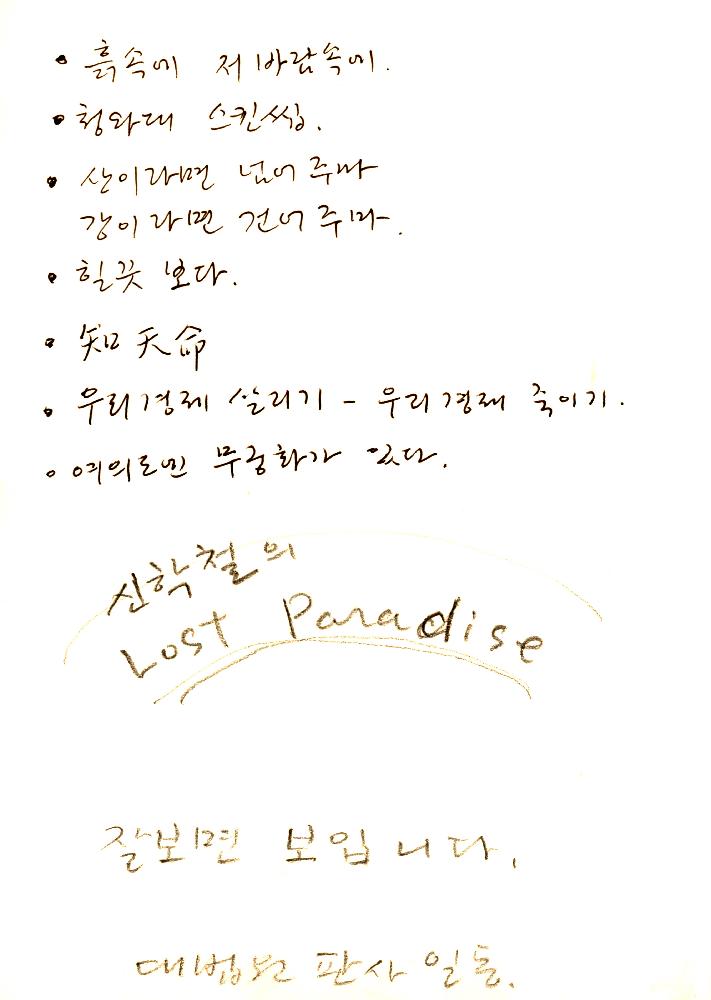 • 흙속에 저 바람속에.
• 청와대 스킨씹.
• 산이라면 넘어 주마
강이라면 건너 주마.
• 힐끗 보다.
• 知天命
• 우리경제 살리기 - 우리경제 죽이기.
• 여의도엔 무궁화가 있다.
신학철의
Lost Paradise
잘보면 보입니다.
대법원 판사 일동.